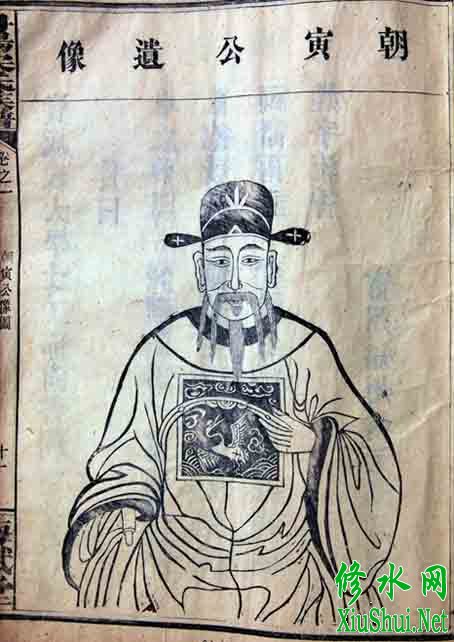 朝寅公遺像
卷之一
朝寅公像圖
十一
修水网
XiuShui.Net